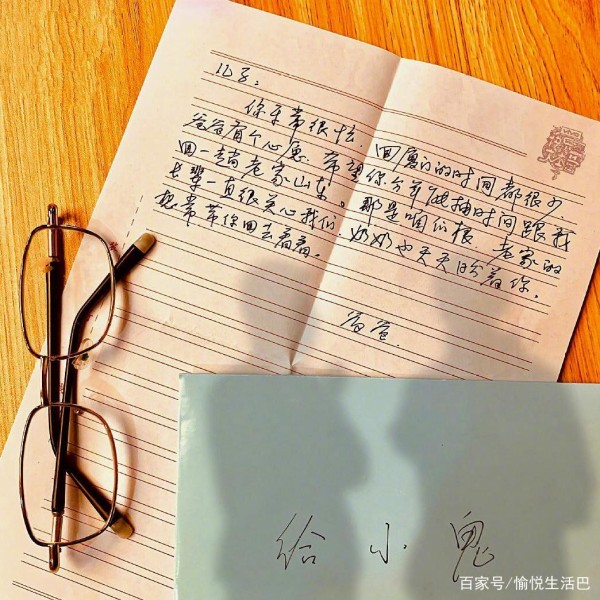 儿子：
你平常很忙，回厦门的时间都很少，
爸爸有个心愿，希望你今年能抽时间跟我
回一趟老家山东。那是咱们根，老家的
长辈一直很关心我们，奶奶也天天盼着你。
想带你回去看看。
爸爸
给小鬼
百家号/愉悦生活巴